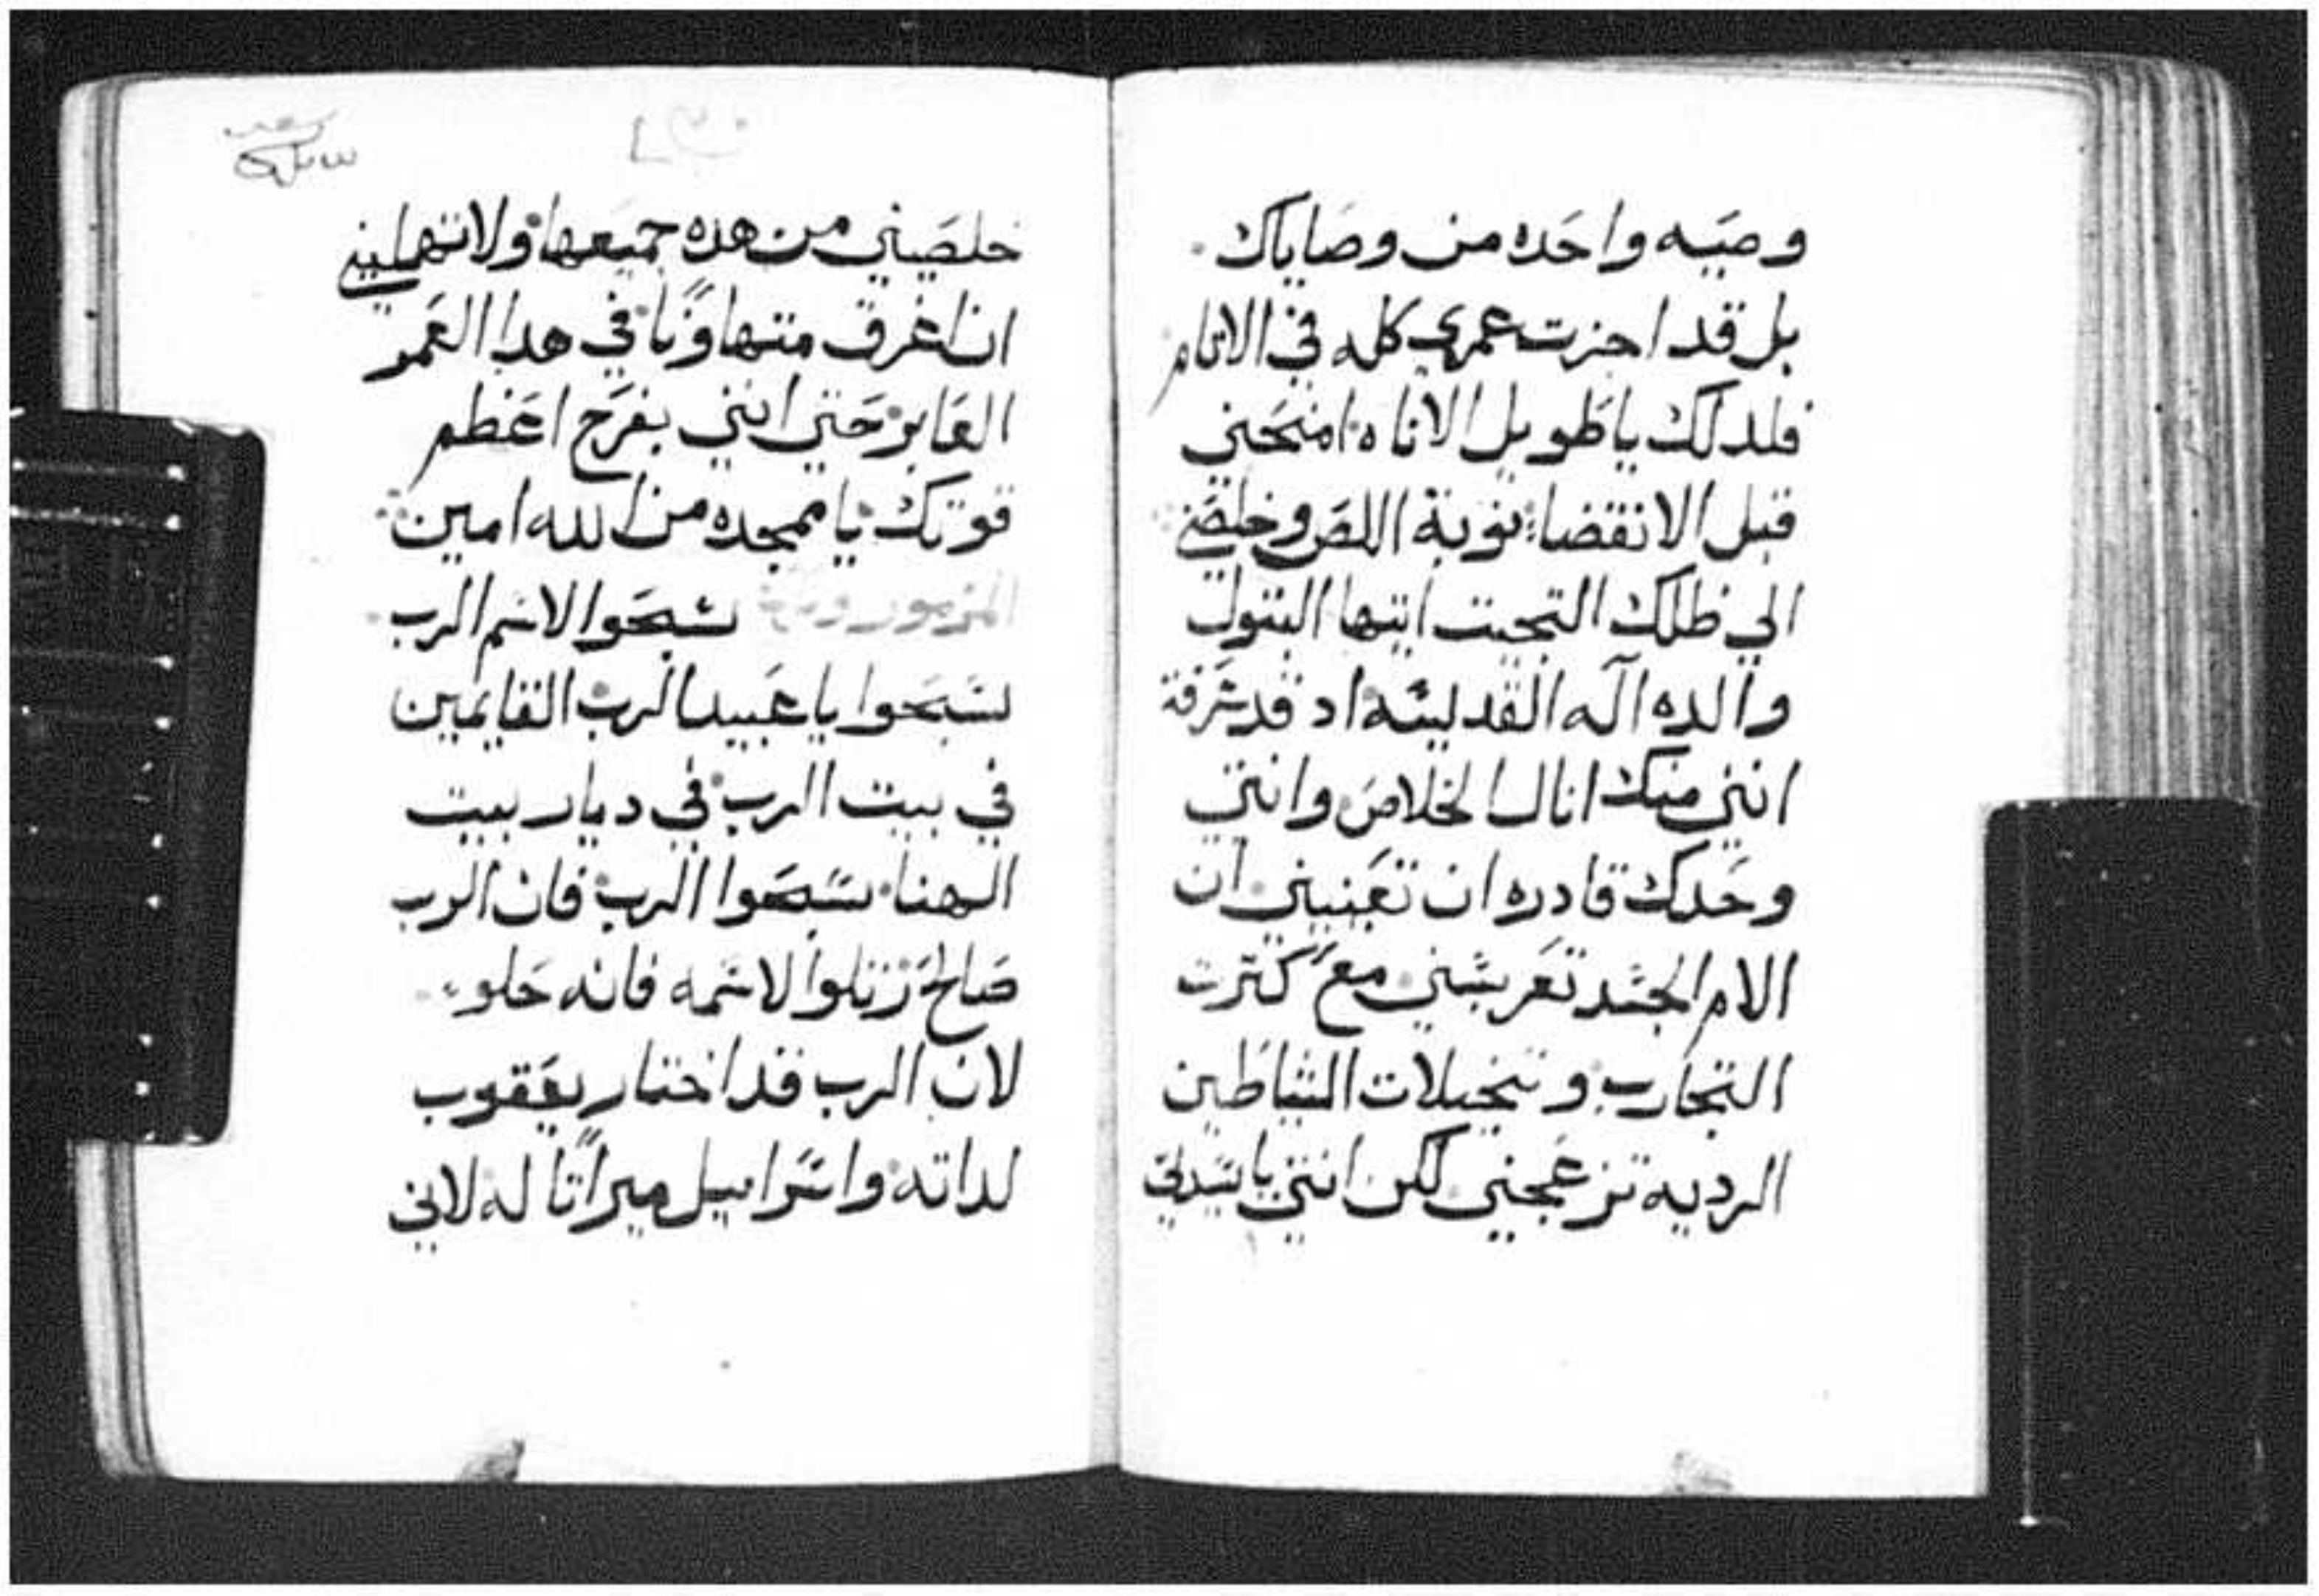 وصيه واحده من وصاياك
بل قد اجزت عمري كله في الاتام
فلدلك ياطويل الاناه امنحني
قبل الانقضا توبة اللص وخلصني
الي ظلك التجيت ايتها البتول
والده اله القديسه اد قد عرفة
انني منك انال الخلاص وانتي
وحدك قادره ان تعينيني ان
الام الجسد تعربسني مع كترت
التجارب وتخيلات الشياطين
الرديه تزعجني لكن انتي ياسيدتي
خلصيني من هده جميعها ولا تهمليني
ان اغرق متهاونا في هدا العمر
العابر حتي انني بفرح اعظم
قوتك يا ممجده من الله امين
المزمور سبحوا لاسم الرب
سبحوا يا عبيد الرب القايمين
في بيت الرب في ديار بيت
الهنا سبحوا الرب فان الرب
صالح رتلوا لاسمه فانه حلو
لان الرب قد اختار يعقوب
لداته واسراييل ميراتا له لاني